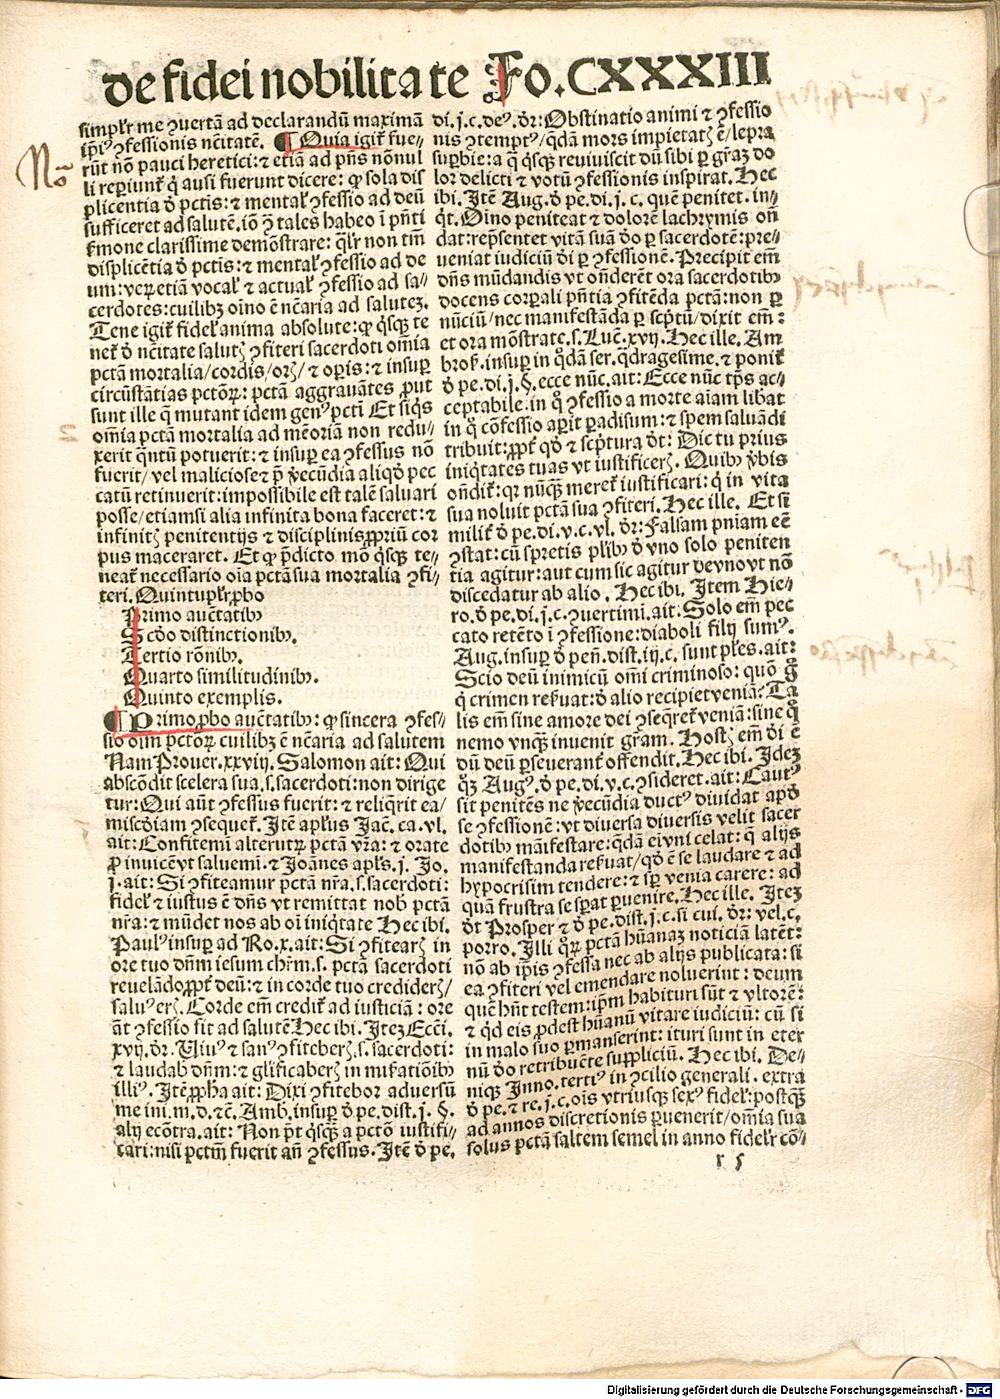 de fidei nobilitate Fo.CXXXIII
simplr me ꝯuertã ad declarandũ maximã
ip̃i⁹ ꝯfessionis nc̃itatẽ. ¶ Quia igit᷑ fue⸗
rũt nõ pauci heretici: ⁊ etiã ad pñs nõnul
li reperiunt᷑ q̇ ausi fuerunt dicere: ꝙ sola dis
plicentia ð pctĩs: ⁊ mental᷑ ꝯfessio ad deũ
sufficeret ad salutẽ, iõ ꝯ̃ tales habeo ĩ pñti
ẜmone clarissime demõstrare: qlr non tm̃
displicẽtia ð pctĩs: ⁊ mental᷑ ꝯfessio ad de
um: veꝝ etiã vocal᷑ ⁊ actual᷑ ꝯfessio ad sa⸗
cerdotes: cuilibꝫ oĩno ẽ nẽaria ad salutez.
Tene igit᷑ fidel᷑ anima absolute: ꝙ q̇sqꝫ te
net᷑ ð nc̃itate salutꝭ ꝯfiteri sacerdoti omĩa
pctã mortalia/cordis/orꝭ/ ⁊ oꝑis: ⁊ insuꝑ
circũstãtias pctõꝝ: pctã aggrauãtes ꝓut
sunt ille q̃ mutant idem gen⁹ pcti Et siq̇s
omĩa pctã mortalia ad mẽoriã non redu⸗
xerit q̃ntũ potuerit: ⁊ insuꝑ ea ꝯfessus nõ
fuerit/ vel maliciose ⁊ p̃ v̾ecũdia aliqð pec
catũ retinuerit: impossibile est talẽ saluari
posse/etiamsi alia infinita bona faceret: ⁊
infinitꝭ penitentijs ⁊ disciplinis ꝓpriũ cor
pus maceraret. Et ꝙ p̃dicto mõ q̇sqꝫ te⸗
neat᷑ necessario oĩa pctã sua mortalia ꝯfi⸗
teri. Quintuplr ꝓbo
Primo auc̃tatibꝰ
Scðo distinctionibꝰ.
Tertio rõnibꝰ.
Quarto similitudinibꝰ.
Quinto exemplis.
¶ Primo ꝓbo auc̃tatibꝰ: ꝙ sincera ꝯfes⸗
sio oĩm pctõꝝ cuilibꝫ ẽ nc̃aria ad salutem
Nam Prouer. xxviij. Salomon ait: Qui
abscõdit scelera sua. s. sacerdoti: non dirige
tur: Qui aũt ꝯfessus fuerit: ⁊ reliq̃rit ea/
miscðiam ꝯsequet᷑. Itẽ apl̃us Jac̃. ca. vl.
ait: Confitemĩ alterutꝝ pctã vr̃a: ⁊ orate
ꝓ inuicẽ vt saluemĩ. ⁊ Joãnes apl̃s. j. Jo.
j. ait: Si ꝯfiteamur pctã nr̃a. s. sacerdoti:
fidel᷑ ⁊ iustus ẽ dñs vt remittat nob̃ pctã
nr̃a: ⁊ mũdet nos ab oĩ iniq̇tate Hec ibi.
Paul⁹ insuꝑ ad Ro. x. ait: Si ꝯfitearꝭ in
ore tuo dñm iesum chr̃m. s. pctã sacerdoti
reuelãdo ꝓpt̾ deũ: ⁊ in corde tuo crediderꝭ/
salu⁹ erꝭ. Corde em̃ credit᷑ ad iusticiã: ore
aũt ꝯfessio fit ad salutẽ Hec ibi. Itez Ecc̃i.
xvij. ðr. Uiu⁹ ⁊ san⁹ ꝯfiteberꝭ. s. sacerdoti:
⁊ laudab̃ dñm: ⁊ gl̃ificaberꝭ in miẜatiõibꝰ
illi⁹. Itẽ ꝓpħa ait: Dixi ꝯfitebor aduersũ
me ini. m. d. ⁊c̃. Amb. insuꝑ ð pe. dist. j. §.
alij ecõtra. ait: Non põt q̇sqꝫ a pctõ iustifi⸗
cari: nisi pctm̃ fuerit añ ꝯfessus. Itẽ ð pe.
di. j. c. de⁹. ðr: Obstinatio animi ⁊ ꝯfessio
nis ꝯtempt⁹/ q̃dã mors impietatꝭ ẽ/ lepra
suꝑbie: a q̃ q̇sqꝫ reuiuiscit dũ sibi ꝑ gr̃az do
lor delicti ⁊ votũ ꝯfessionis inspirat. Hec
ibi. Itẽ Aug. ð pe. di. j. c. quẽ penitet. in⸗
q̇t. Oĩno peniteat ⁊ dolorẽ lachrymis oñ
dat: rep̃sentet vitã suã ðo ꝑ sacerdotẽ: pre⸗
ueniat iudiciũ di ꝑ ꝯfessionẽ. Precipit em̃
dñs mũdandis vt oñderẽt ora sacerdotibꝰ
docens corꝑali pñtia ꝯfitẽda pctã: non ꝑ
nũciũ/ nec manifestãda ꝑ scp̃tũ/ dixit em̃:
et ora mõstrate. s. Luc̃. xvij. Hec ille. Am
broẜ. insuꝑ in q̃dã ser. q̃dragesime. ⁊ ponit᷑
ð pe. di. j. §. ecce nũc. ait: Ecce nũc tp̃s ac⸗
ceptabile: in q̊ ꝯfessio a morte aiam libat
in q̊ cõfessio aꝑit ꝑadisum: ⁊ spem saluãdi
tribuit: ꝓpt᷑ qð ⁊ scp̃tura ðt: Dic tu prius
iniq̇tates tuas vt iustificerꝭ. Quibꝰ v̾bis
oñdit᷑: qꝛ nũqꝫ meret᷑ iustificari: q̇ in vita
sua noluit pctã sua ꝯfiteri. Hec ille. Et si
milit᷑ ð pe. di. v. c. vl. ðr: Falsam pniam eẽ
ꝯstat: cũ spretis pl̃ibꝰ ð vno solo peniten
tia agitur: aut cum sic agitur ð vno vt nõ
discedatur ab alio. Hec ibi. Item Hie⸗
ro. ð pe. di. j. c. ꝯuertimi. ait: Solo em̃ pec
cato retẽto ĩ ꝯfessione: diaboli filij sum⁹.
Aug. insuꝑ ð peñ. dist. iij. c. sunt pl̃es. ait:
Scio deũ inimicũ omĩ criminoso: quõ g̊
q̇ crimen reẜuat: ð alio recipiet veniã: Ta
lis em̃ sine amore dei ꝯseqret᷑ veniã: sine q̊
nemo vnqꝫ inuenit gr̃am. Hostꝭ em̃ di ẽ
dũ deũ ꝑseuerant᷑ offendit. Hec ibi. Idez
qꝫ Aug⁹. ð pe. di. v. c. ꝯsideret. ait: Caut⁹
sit penitẽs ne v̾ecũdia duct⁹ diuidat apð
se ꝯfessionẽ: vt diuersa diuersis velit sacer
dotibꝰ mãifestare: q̃dã eĩ vni celat: q̃ alijs
manifestanda reẜuat/ qð ẽ se laudare ⁊ ad
hypocrisim tendere: ⁊ sp̃ venia carere: ad
quã frustra se sꝑat ꝑuenire. Hec ille. Itez
ðt Prosper ⁊ ð pe. dist. j. c. si cui. ðr: vel. c.
porro. Illi q̊ꝝ pctã hũanaz noticiã latẽt:
nõ ab ip̃is ꝯfessa nec ab alijs publicata: si
ea ꝯfiteri vel emendare noluerint: deum
quẽ hñt testem: ip̃m habituri sũt ⁊ vltorẽ:
⁊ qd eis ꝓdest hũanũ vitare iudiciũ: cũ si
in malo suo ꝑmanserint: ituri sunt in eter
nũ ðo retribuẽte suppliciũ. Hec ibi. De⸗
niqꝫ Inno. terti⁹ in ꝯcilio generali. extra
ð pe. ⁊ re. j. c. oĩs vtriusqꝫ sex⁹ fidel᷑: postqꝫ
ad annos discretionis ꝑuenerit/ omĩa sua
solus pctã saltem semel in anno fidelr cõ⸗
r 5